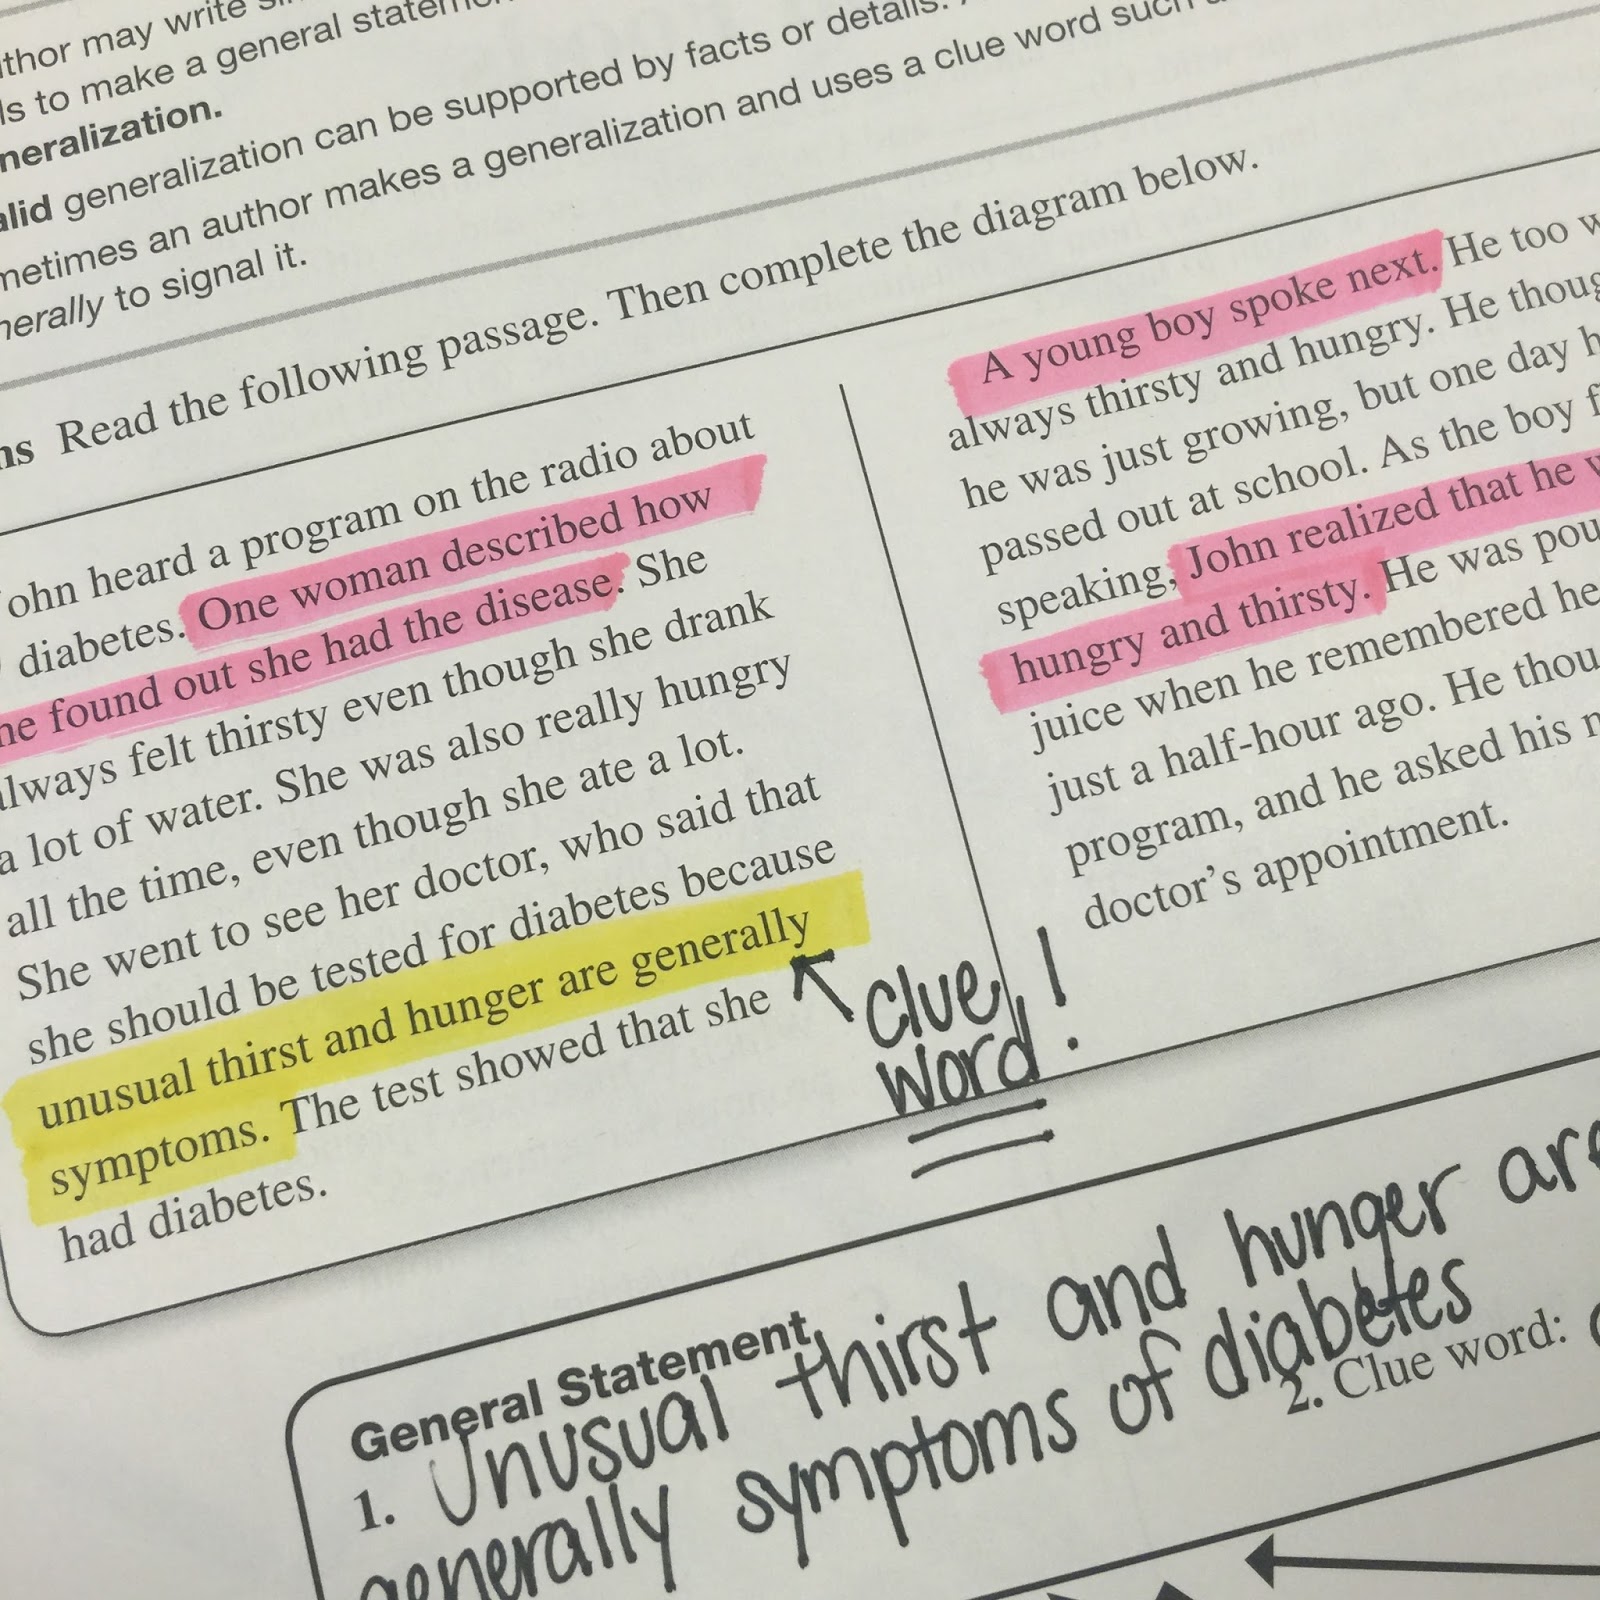 may write
ls to make a general
neralization.
alid generalization can be supported by facts or details.
metimes an author makes a generalization and uses a clue word such
nerally to signal it.
ns Read the following passage. Then complete the diagram below.
ohn heard a program on the radio about
diabetes. One woman described how
he found out she had the disease. She
lways felt thirsty even though she drank
a lot of water. She was also really hungry
all the time, even though she ate a lot.
She went to see her doctor, who said that
she should be tested for diabetes because
unusual thirst and hunger are generally
symptoms. The test showed that she
had diabetes.
A young boy spoke next. He too w
always thirsty and hungry. He thoug
he was just growing, but one day h
passed out at school. As the boy f
speaking, John realized that he w
hungry and thirsty. He was pou
juice when he remembered he
just a half-hour ago. He thou
program, and he asked his
doctor's appointment.
Clue
Word!
General Statement
1. Unusual thirst and hunger are
generally symptoms of diabetes
2. Clue word: